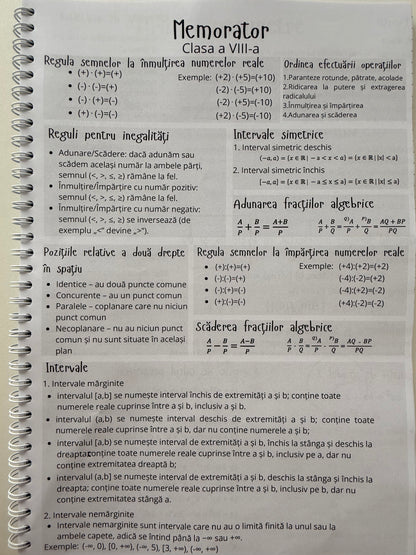 Memorator
Clasa a VIII-a
Regula semnelor la înmulțirea numerelor reale
• (+) · (+)=(+)
• (-) · (-)=(+)
• (-) · (+)=(-)
• (+) · (-)=(-)
Exemple: (+2) · (+5)=(+10)
(-2) · (-5)=(+10)
(-2) · (+5)=(-10)
(+2) · (-5)=(-10)
Ordinea efectuării operațiilor
1.Paranteze rotunde, pătrate, acolade
2.Ridicarea la putere și extragerea
radicalului
3.Înmulțirea și împărțirea
4.Adunarea și scăderea
Reguli pentru inegalități
• Adunare/Scădere: dacă adunăm sau
scădem același număr la ambele părți,
semnul (<, >, ≤, ≥) rămâne la fel.
• Înmulțire/Împărțire cu număr pozitiv:
semnul (<, >, ≤, ≥) rămâne la fel.
• Înmulțire/Împărțire cu număr negativ:
semnul (<, >, ≤, ≥) se inversează (de
exemplu „<" devine „>").
Intervale simetrice
1. Interval simetric deschis
(−a, a) = {x ∈ ℝ | − a < x < a} = {x ∈ ℝ | |x| < a}
2. Interval simetric închis
[−a, a] = {x ∈ ℝ | − a ≤ x ≤ a} = {x ∈ ℝ | |x| ≤ a}
Adunarea fracțiilor algebrice
A/P + B/P = A+B/P
A/P + B/Q = Q)A/P + P)B/Q = AQ + BP/PQ
Pozițiile relative a două drepte
în spațiu
• Identice – au două puncte comune
• Concurente – au un punct comun
• Paralele – coplanare care nu niciun
punct comun
• Necoplanare – nu au niciun punct
comun și nu sunt situate în același
plan
Regula semnelor la împărțirea numerelor reale
• (+):(+)=(+)
• (-):(-)=(+)
• (-):(+)=(-)
• (+):(-)=(-)
Exemple: (+4):(+2)=(+2)
(-4):(-2)=(+2)
(-4):(+2)=(-2)
(+4):(-2)=(-2)
Scăderea fracțiilor algebrice
A/P - B/P = A−B/P
A/P - B/Q = Q)A/P - P)B/Q = AQ - BP/PQ
Intervale
1. Intervale mărginite
• intervalul [a,b] se numește interval închis de extremități a și b; conține toate
numerele reale cuprinse între a și b, inclusiv a și b.
• intervalul (a,b) se numește interval deschis de extremități a și b; conține toate
numerele reale cuprinse între a și b, dar nu conține numerele a și b;
• intervalul [a,b) se numește interval de extremități a și b, închis la stânga și deschis la
dreapta;conține toate numerele reale cuprinse între a și b, inclusiv pe a, dar nu
conține extremitatea dreaptă b;
• intervalul (a,b] se numește interval de extremități a și b, deschis la stânga și închis la
dreapta; conține toate numerele reale cuprinse între a și b, inclusiv pe b, dar nu
conține extremitatea stângă a.
2. Intervale nemărginite
• Intervale nemarginite sunt intervale care nu au o limită finită la unul sau la
ambele capete, adică se întind până la −∞ sau +∞.
Exemple: (-∞, 0), [0, +∞), (-∞, 5), [3, +∞), (-∞, +∞)